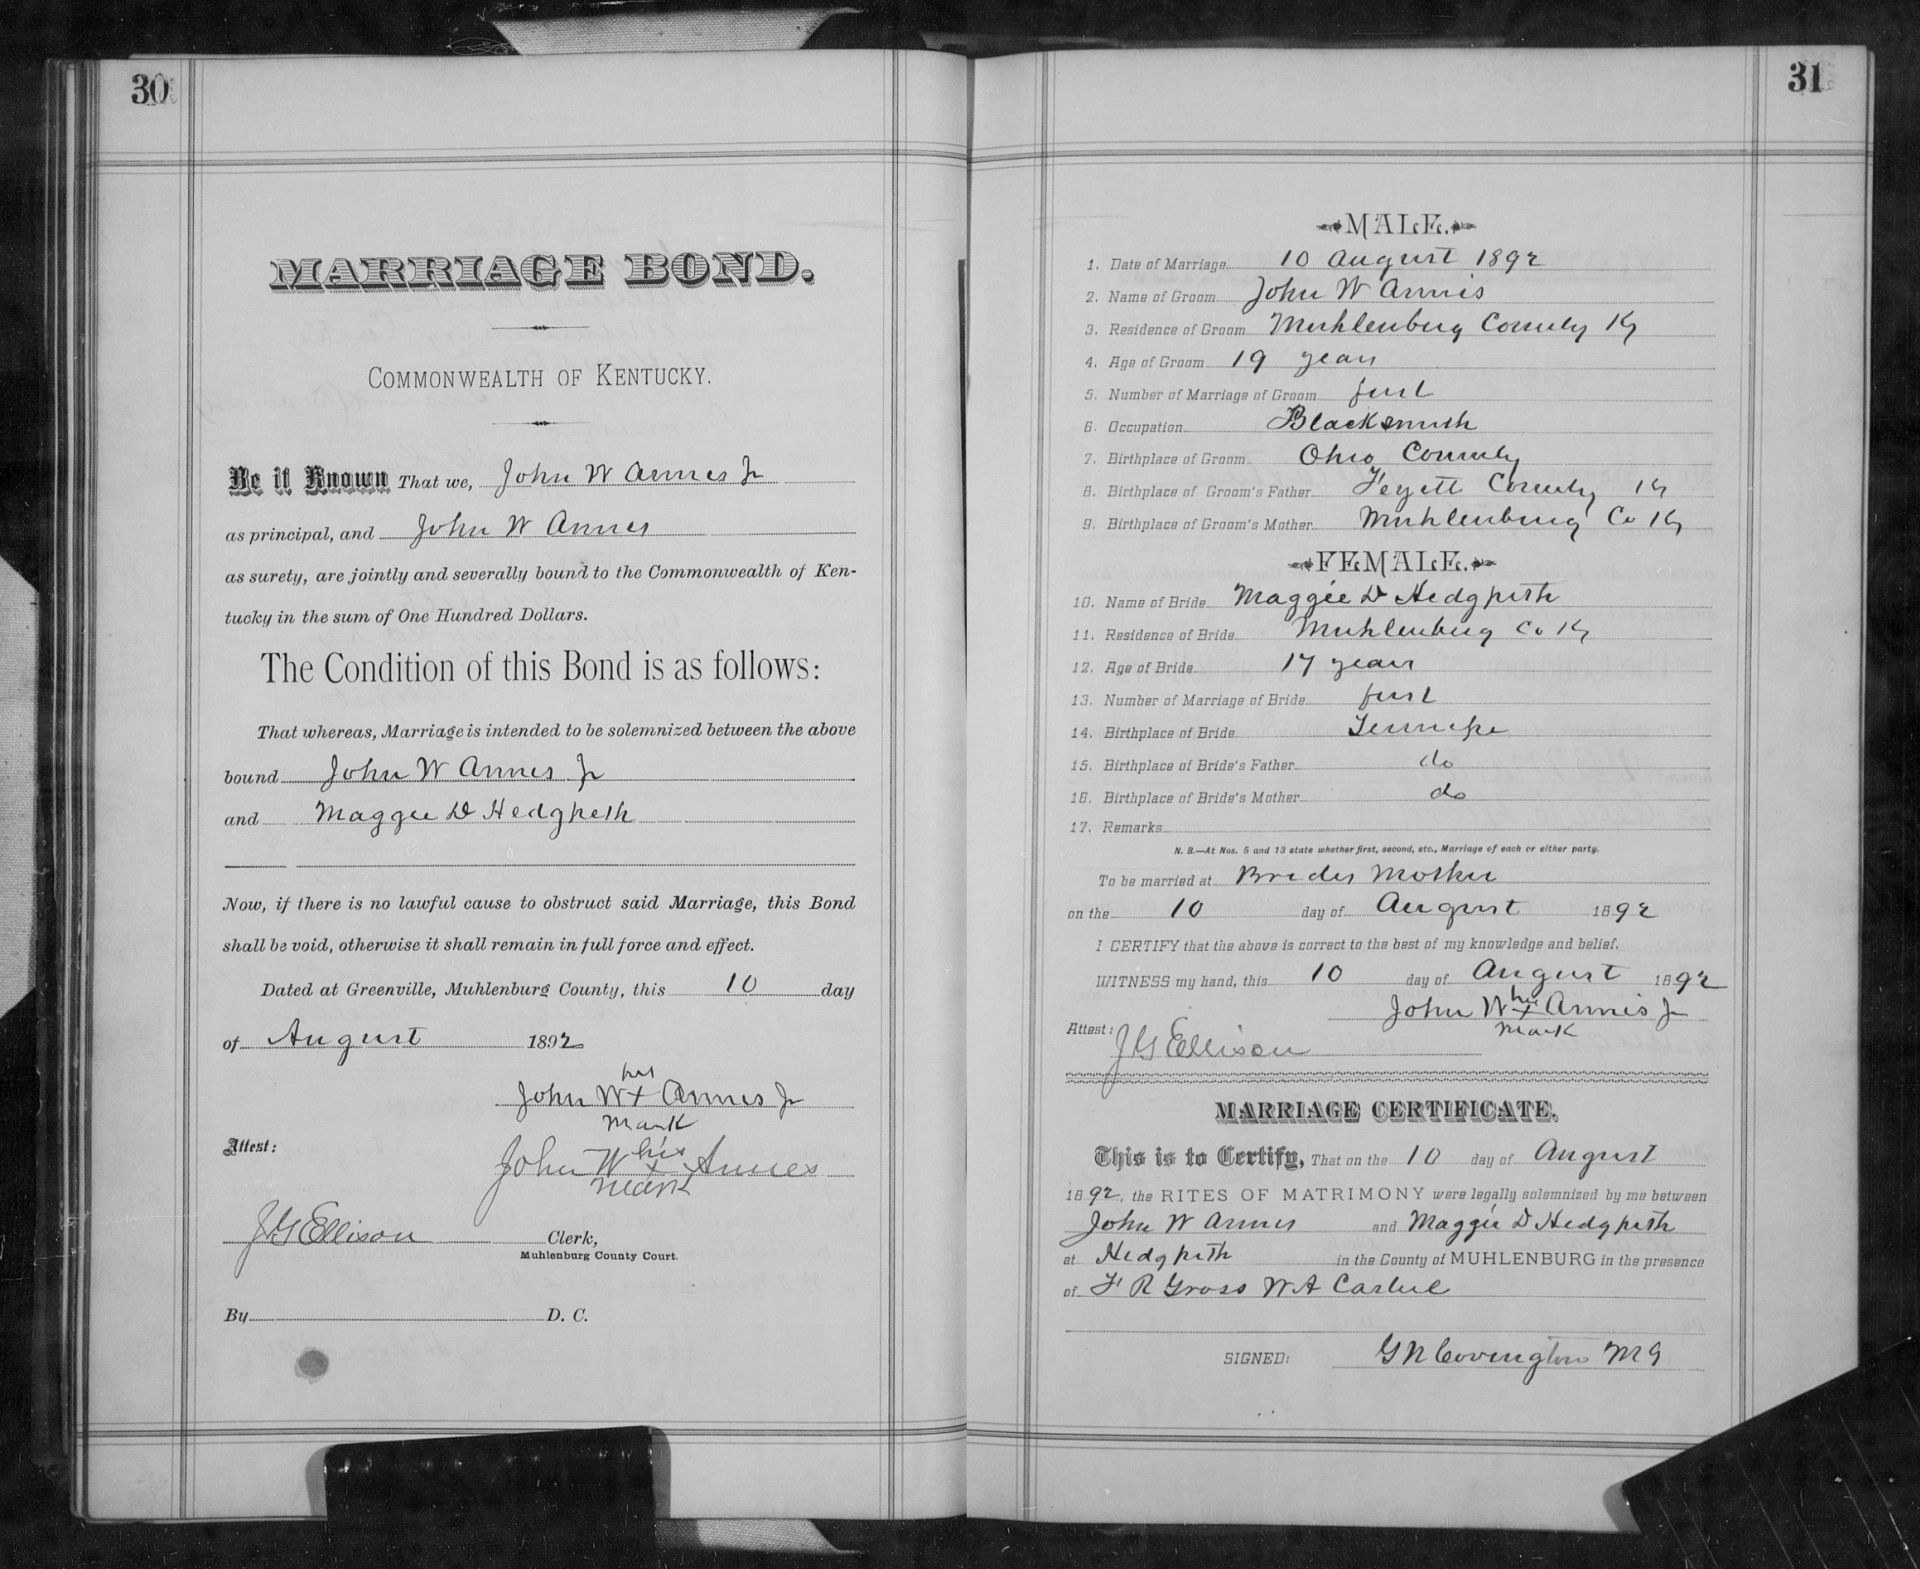 30
MARRIAGE BOND.
COMMONWEALTH OF KENTUCKY.
Be it Known That we, John W Annes Jr
as principal, and John W Annes
as surety, are jointly and severally bound to the Commonwealth of Ken-
tucky in the sum of One Hundred Dollars.
The Condition of this Bond is as follows:
That whereas, Marriage is intended to be solemnized between the above
bound John W Annes Jr
and Maggie D Hedgpeth
Now, if there is no lawful cause to obstruct said Marriage, this Bond
shall be void, otherwise it shall remain in full force and effect.
Dated at Greenville, Muhlenburg County, this 10 day
of August 1892
his
John W + Annes Jr
mark
Attest:
his
John W + Annes
mark
J G Ellison Clerk,
Muhlenburg County Court.
By D. C.
31
MALE.
1. Date of Marriage 10 August 1892
2. Name of Groom John W Annis
3. Residence of Groom Muhlenburg County Ky
4. Age of Groom 19 years
5. Number of Marriage of Groom first
6. Occupation Blacksmith
7. Birthplace of Groom Ohio County
8. Birthplace of Groom's Father Feyett County Ky
9. Birthplace of Groom's Mother Muhlenburg Co Ky
FEMALE.
10. Name of Bride Maggie D Hedgpeth
11. Residence of Bride Muhlenburg Co Ky
12. Age of Bride 17 years
13. Number of Marriage of Bride first
14. Birthplace of Bride
15. Birthplace of Bride's Father do
16. Birthplace of Bride's Mother do
17. Remarks
N. B.—At Nos. 5 and 13 state whether first, second, etc., Marriage of each or either party.
To be married at Brides Mother
on the 10 day of August 1892
I CERTIFY that the above is correct to the best of my knowledge and belief.
WITNESS my hand, this 10 day of August 1892
his
John W + Annis Jr
mark
Attest: J G Ellison
MARRIAGE CERTIFICATE.
This is to Certify, That on the 10 day of August
1892, the RITES OF MATRIMONY were legally solemnized by me between
John W Annes and Maggie D Hedgpeth
at Hedgpeth in the County of MUHLENBURG in the presence
of F R Gross W A Carlile
SIGNED: G N Covington M G